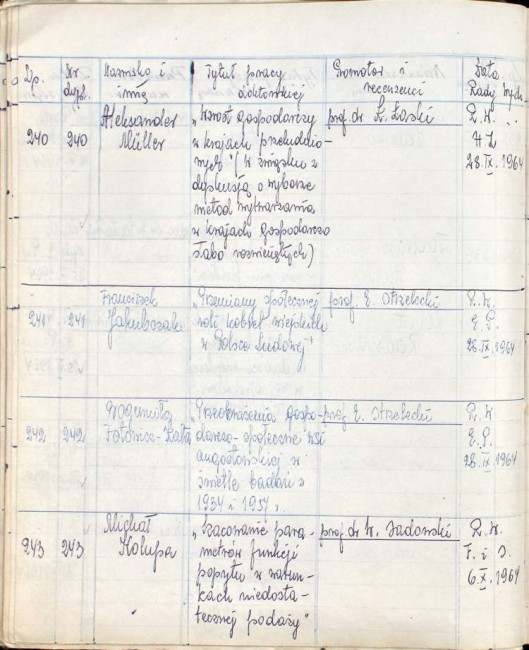 Lp.
Nr dypl.
Nazwisko i imię
Tytuł pracy doktorskiej
Promotor i recenzenci
Data Rady Wydz.
240 240 Aleksander Müller
„Wzrost gospodarczy
w krajach przeludnio-
nych" (w związku z
dyskusją o wyborze
metod wytwarzania
w krajach gospodarczo
słabo rozwiniętych)
prof. dr K. Łaski
R. W.
H. Z.
28.IX.1964
241 241 Franciszek Jakubczak
„Przemiany społecznej
roli kobiet wiejskich
w Polsce Ludowej"
prof. E. Strzelecki
R. W.
E. P.
28.IX.1964
242 242 Bogumiła
„Przeobrażenia gospo-
darczo-społeczne wsi
w
świetle badań z
1934 i 1954 r.
prof. E. Strzelecki
R. W.
E. P.
28.IX.1964
243 243 Michał Kolupa
„Szacowanie para-
metrów funkcji
popytu w warun-
kach niedosta-
tecznej podaży"
prof. dr W. Sadowski
R. W.
F. i S.
6.X.1964